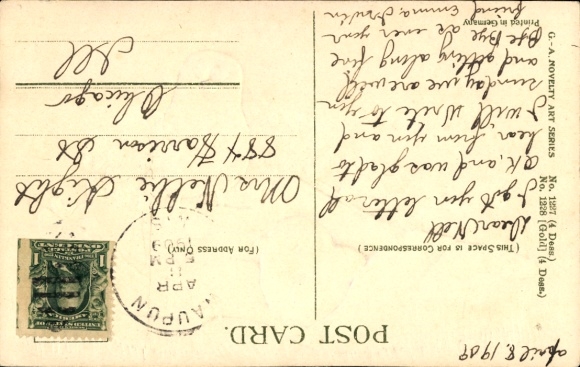 april 8. 1909
POST CARD.
(THIS SPACE IS FOR CORRESPONDENCE)
(FOR ADDRESS ONLY)
Dear Nell
I got you letter all
ok, and was glad to
hear from you and
I will write to you
sunday we are well
and getting along fine
Bye Bye as ever your
friend Emma.
WAUPUN
APR
PM
1909
WIS
1
ONE CENT
1
Mrs Nellie Hight
884 Harrison St
Chicago
Ill
G.-A. NOVELTY ART SERIES No. 1227 (4 Dess.)
No. 1228 [Gold] (4 Dess.)
Printed in Germany